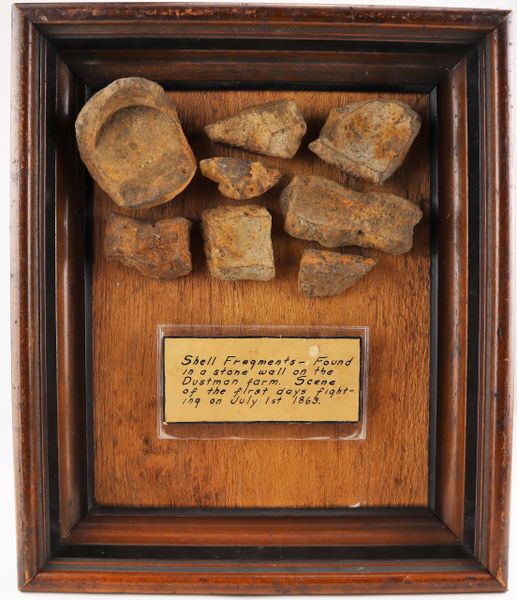 Shell Fragments - Found
in a stone wall on the
Dustman farm. Scene
of the first days fight-
ing on July 1st 1863.